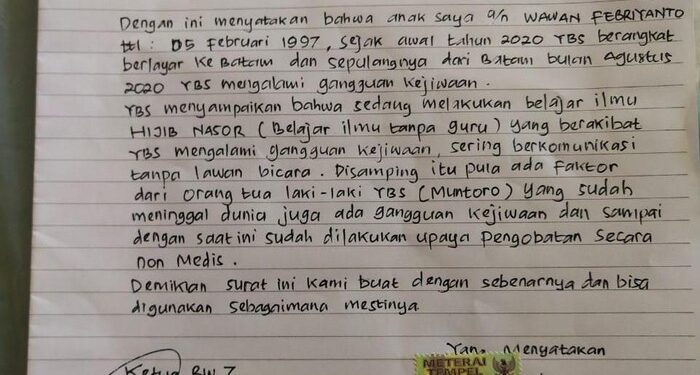 Dengan ini menyatakan bahwa anak saya a/n WAWAN FEBRIYANTO
ttl : 05 Februari 1997, sejak awal tahun 2020 YBS berangkat
berlayar ke Batam dan sepulangnya dari Batam bulan Agustus
2020 YBS mengalami gangguan kejiwaan.
YBS menyampaikan bahwa sedang melakukan belajar ilmu
HIJIB NASOR (Belajar ilmu tanpa guru) yang berakibat
YBS mengalami gangguan kejiwaan, sering berkomunikasi
tanpa lawan bicara. Disamping itu pula ada faktor
dari orang tua laki-laki YBS (Muntoro) yang sudah
meninggal dunia juga ada gangguan kejiwaan dan sampai
dengan saat ini sudah dilakukan upaya pengobatan secara
non Medis.
Demikian surat ini kami buat dengan sebenarnya dan bisa
digunakan sebagaimana mestinya
Yang Menyatakan
Ketua RW 7
METERAI
TEMPEL